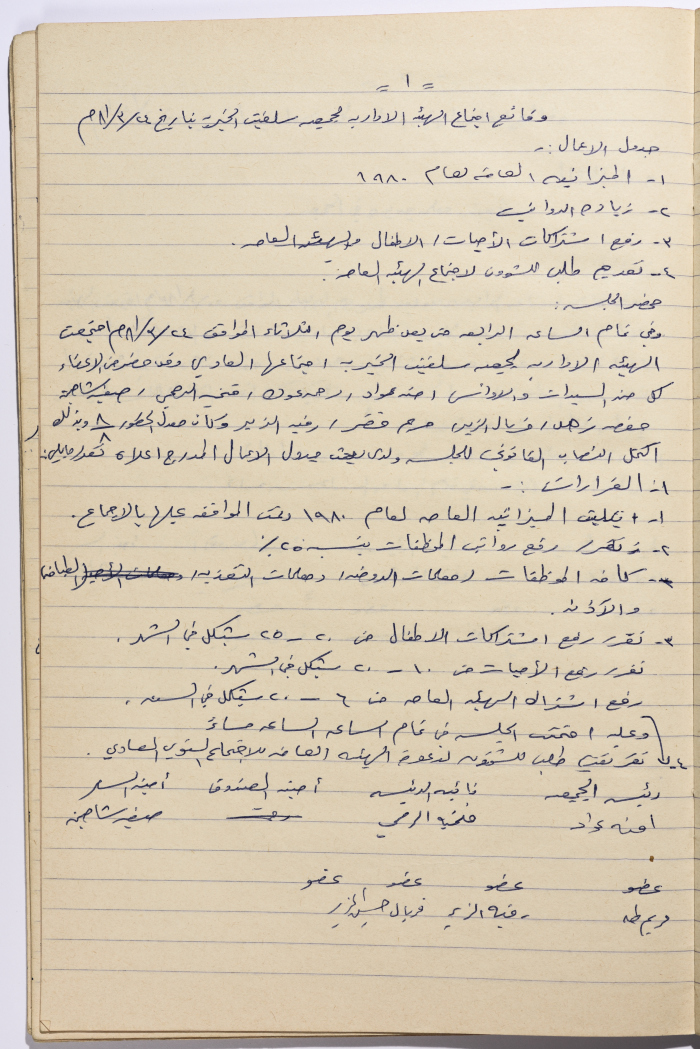 = ١ =
وقائع اجتماع الهيئة الادارية لجمعية سلفيت الخيرية بتاريخ ٨١/٣/٢٤م
جدول الاعمال :-
١- الميزانية العامة لعام ١٩٨٠
٢- زيادة الرواتب
٣- رفع اشتراكات الأميات / الاطفال والهيئة العامة .
٤- تقديم طلب للشؤون لاجتماع الهيئة العامة .
حضر الجلسة :
وفي تمام الساعة الرابعة من بعد ظهر يوم الثلاثاء الموافق ٨١/٣/٢٤م اجتمعت
الهيئة الادارية لجمعية سلفيت الخيرية اجتماعها العادي وقد حضر من الاعضاء
كل من السيدات والاوانس / امنه عواد / فتحيه / صفيه شاهين
حفصه / فريال الزير / مريم / رفيه الزير وكان معدل الحضور ٨/٨ وبذلك
اكتمل النصاب القانوني للجلسة ولدى بحث جدول الاعمال المدرج اعلاه تقرر مايلي :
١: القرارات :-
١- الميزانية العامة لعام ١٩٨٠ وتمت الموافقة عليها بالاجماع .
٢- تقرر رفع رواتب الموظفات بنسبة ٢٥٪
٣- كافة الموظفات / معلمات الروضة / ومعلمات التغذية /
والآذنة .
٣- تقرر رفع اشتراكات الاطفال من ٢٠ - ٢٥ شيكل في الشهر .
تقرر رفع الأميات من ١٠ - ٢٠ شيكل في الشهر .
رفع اشتراك الهيئة العامة من ٦ - ٢٠ شيكل في السنة .
وعليه اختتمت الجلسة في تمام الساعة السابعة مساءً
٤- تقرر تقديم طلب للشؤون لدعوة الهيئة العامة للاجتماع السنوي العادي .
رئيسة الجمعية نائبة الرئيسة أمينة الصندوق أمينة السر
امنه عواد فتحيه صفيه شاهين
عضو عضو عضو عضو
مريم طه رفيه الزير فريال حسين الزير